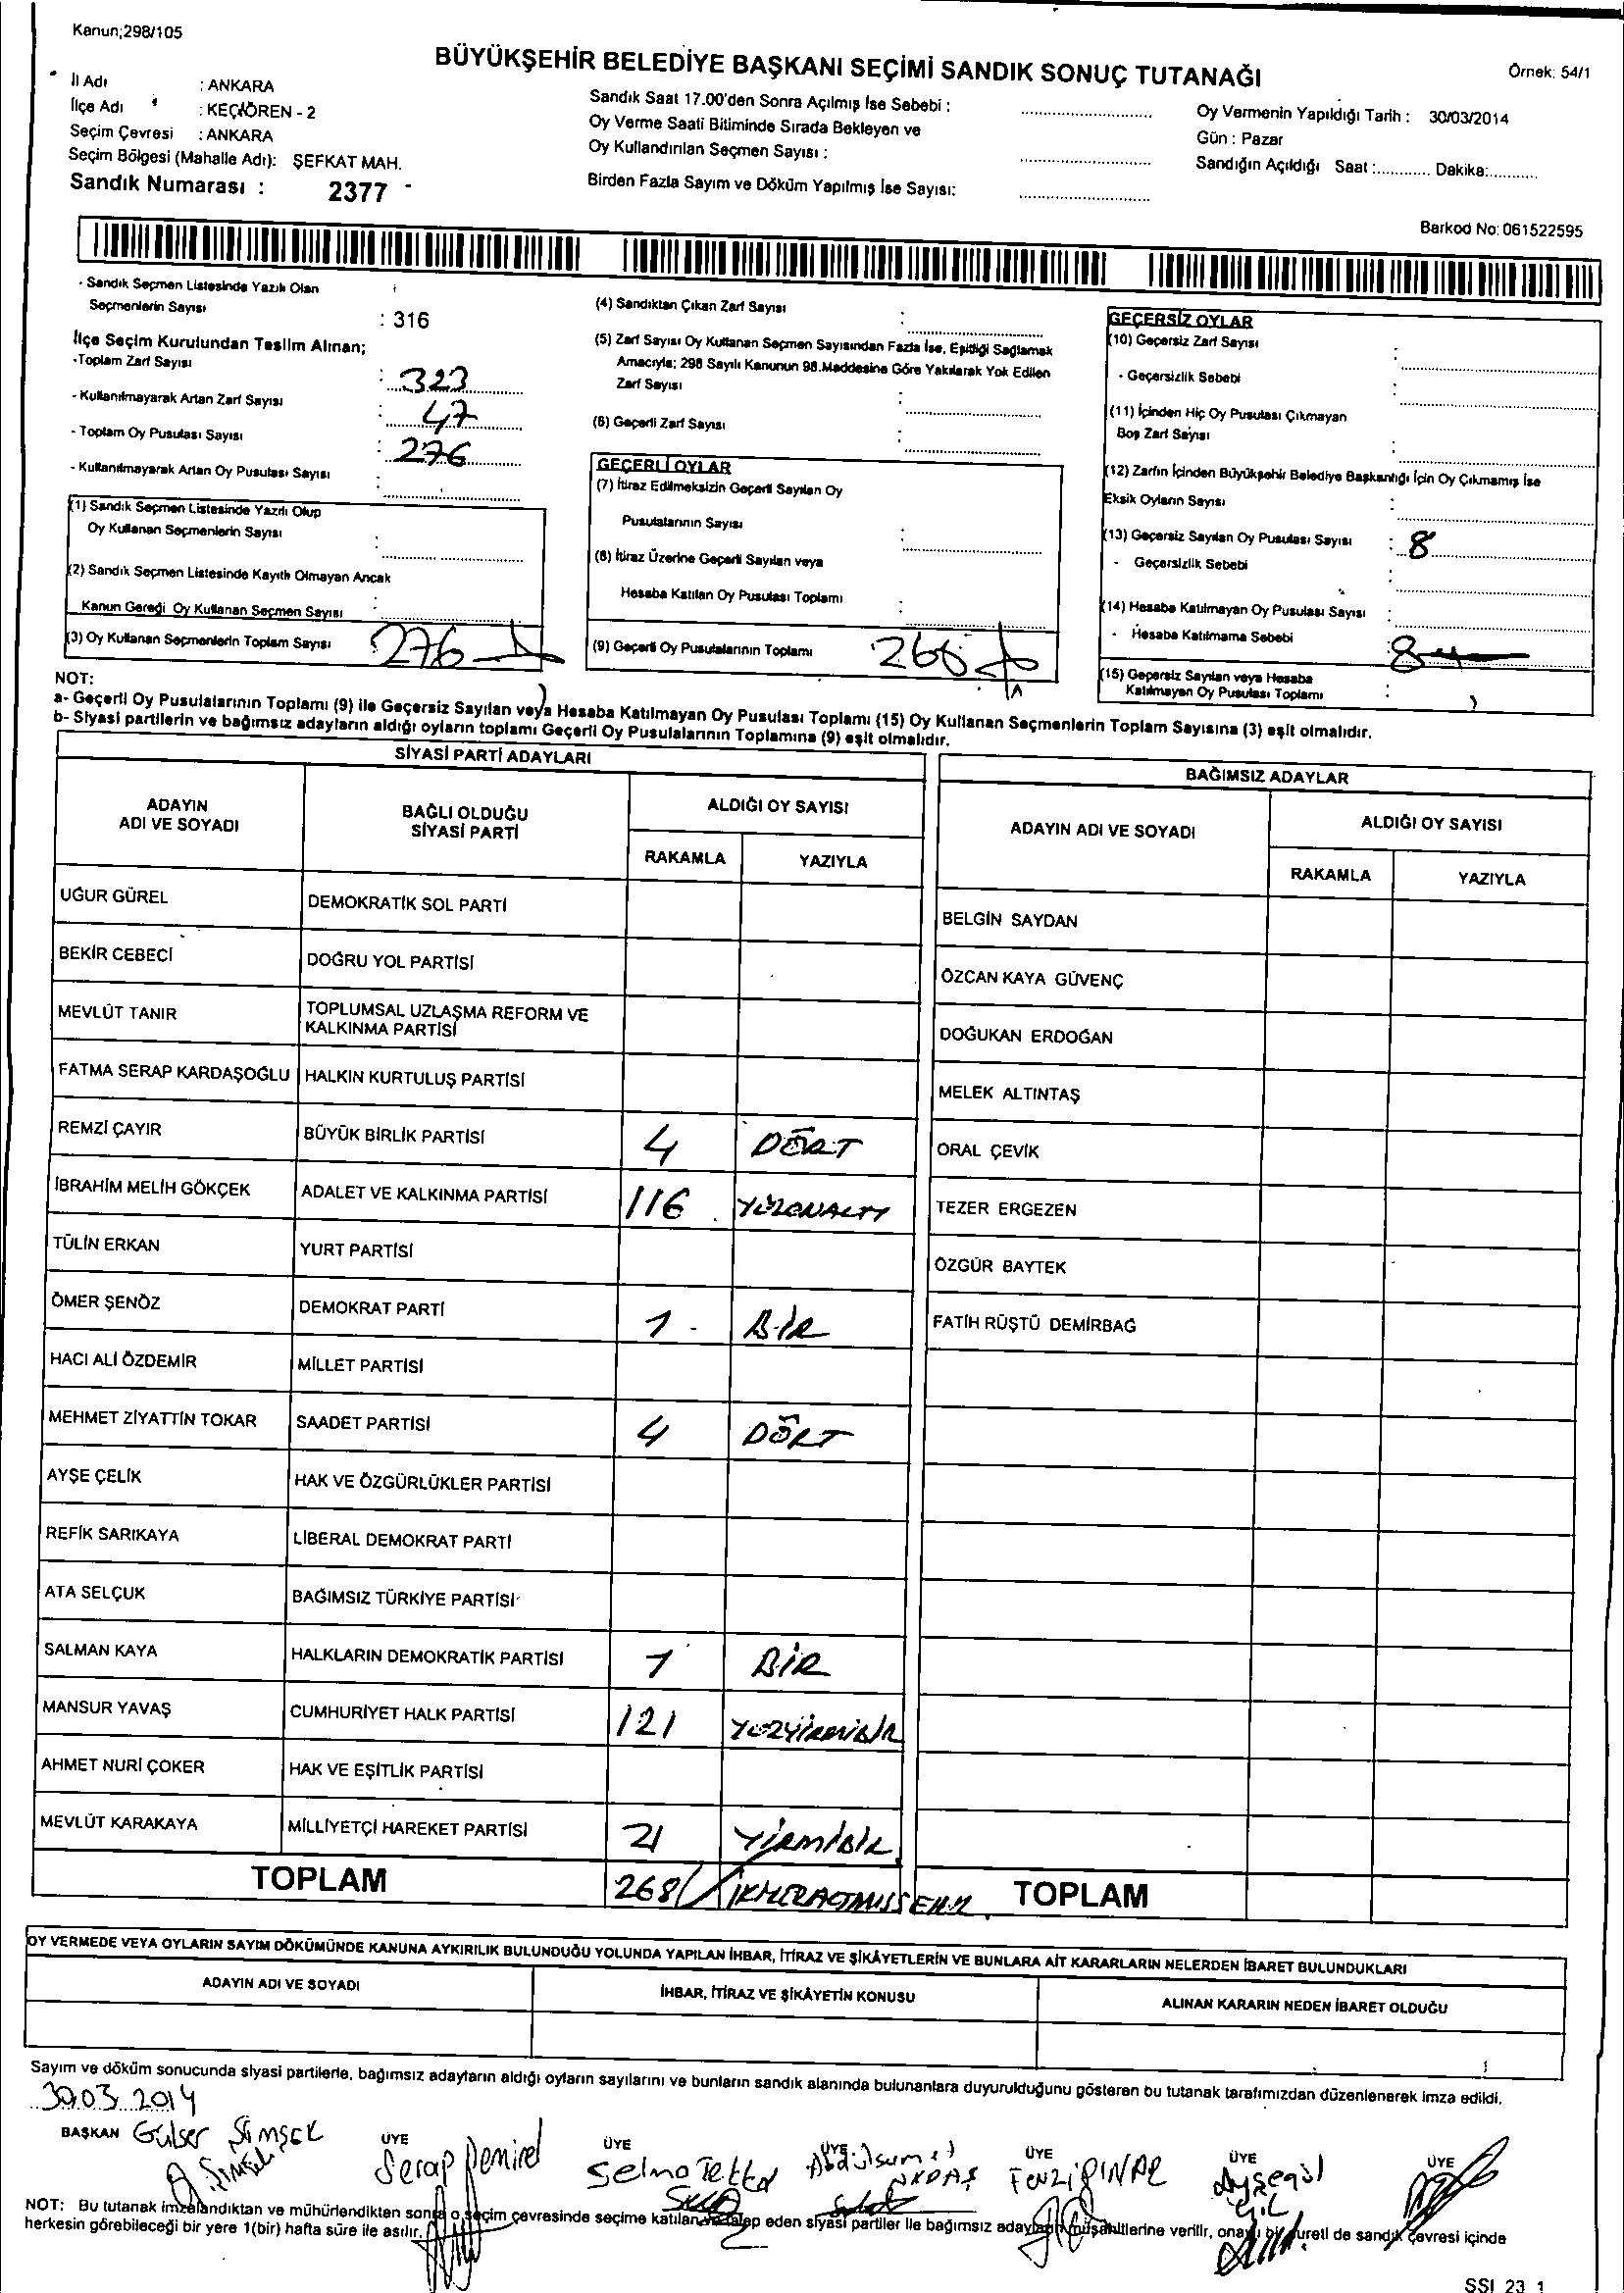 Kanun;298/105
BÜYÜKŞEHİR BELEDİYE BAŞKANI SEÇİMİ SANDIK SONUÇ TUTANAĞI
Örnek: 54/1
İl Adı : ANKARA
İlçe Adı : KEÇİÖREN - 2
Seçim Çevresi : ANKARA
Seçim Bölgesi (Mahalle Adı): ŞEFKAT MAH.
Sandık Numarası : 2377
Sandık Saat 17.00'den Sonra Açılmış İse Sebebi :
Oy Verme Saati Bitiminde Sırada Bekleyen ve
Oy Kullandırılan Seçmen Sayısı :
Birden Fazla Sayım ve Döküm Yapılmış İse Sayısı:
Oy Vermenin Yapıldığı Tarih : 30/03/2014
Gün : Pazar
Sandığın Açıldığı Saat :............ Dakika:...........
Barkod No: 061522595
- Sandık Seçmen Listesinde Yazılı Olan
Seçmenlerin Sayısı : 316
İlçe Seçim Kurulundan Teslim Alınan;
-Toplam Zarf Sayısı : 323
- Kullanılmayarak Artan Zarf Sayısı : 47
- Toplam Oy Pusulası Sayısı : 276
- Kullanılmayarak Artan Oy Pusulası Sayısı :
(1) Sandık Seçmen Listesinde Yazılı Olup
Oy Kullanan Seçmenlerin Sayısı :
(2) Sandık Seçmen Listesinde Kayıtlı Olmayan Ancak
Kanun Gereği Oy Kullanan Seçmen Sayısı :
(3) Oy Kullanan Seçmenlerin Toplam Sayısı : 276
(4) Sandıktan Çıkan Zarf Sayısı :
(5) Zarf Sayısı Oy Kullanan Seçmen Sayısından Fazla İse, Eşitliği Sağlamak
Amacıyla; 298 Sayılı Kanunun 98.Maddesine Göre Yakılarak Yok Edilen
Zarf Sayısı :
(6) Geçerli Zarf Sayısı :
GEÇERLİ OYLAR
(7) İtiraz Edilmeksizin Geçerli Sayılan Oy
Pusulalarının Sayısı :
(8) İtiraz Üzerine Geçerli Sayılan veya
Hesaba Katılan Oy Pusulası Toplamı :
(9) Geçerli Oy Pusulalarının Toplamı 266
GEÇERSİZ OYLAR
(10) Geçersiz Zarf Sayısı :
- Geçersizlik Sebebi :
(11) İçinden Hiç Oy Pusulası Çıkmayan
Boş Zarf Sayısı :
(12) Zarfın İçinden Büyükşehir Belediye Başkanlığı İçin Oy Çıkmamış İse
Eksik Oyların Sayısı :
(13) Geçersiz Sayılan Oy Pusulası Sayısı : 8
- Geçersizlik Sebebi :
(14) Hesaba Katılmayan Oy Pusulası Sayısı :
- Hesaba Katılmama Sebebi : 8
(15) Geçersiz Sayılan veya Hesaba
Katılmayan Oy Pusulası Toplamı :
NOT:
a- Geçerli Oy Pusulalarının Toplamı (9) ile Geçersiz Sayılan veya Hesaba Katılmayan Oy Pusulası Toplamı (15) Oy Kullanan Seçmenlerin Toplam Sayısına (3) eşit olmalıdır.
b- Siyasi partilerin ve bağımsız adayların aldığı oyların toplamı Geçerli Oy Pusulalarının Toplamına (9) eşit olmalıdır.
SİYASİ PARTİ ADAYLARI
ADAYIN ADI VE SOYADI
BAĞLI OLDUĞU SİYASİ PARTİ
ALDIĞI OY SAYISI
RAKAMLA YAZIYLA
UĞUR GÜREL DEMOKRATİK SOL PARTİ
BEKİR CEBECİ DOĞRU YOL PARTİSİ
MEVLÜT TANIR TOPLUMSAL UZLAŞMA REFORM VE KALKINMA PARTİSİ
FATMA SERAP KARDAŞOĞLU HALKIN KURTULUŞ PARTİSİ
REMZİ ÇAYIR BÜYÜK BİRLİK PARTİSİ 4 DÖRT
İBRAHİM MELİH GÖKÇEK ADALET VE KALKINMA PARTİSİ 116 YÜZONALTI
TÜLİN ERKAN YURT PARTİSİ
ÖMER ŞENÖZ DEMOKRAT PARTİ 1 BİR
HACI ALİ ÖZDEMİR MİLLET PARTİSİ
MEHMET ZİYATTİN TOKAR SAADET PARTİSİ 4 DÖRT
AYŞE ÇELİK HAK VE ÖZGÜRLÜKLER PARTİSİ
REFİK SARIKAYA LİBERAL DEMOKRAT PARTİ
ATA SELÇUK BAĞIMSIZ TÜRKİYE PARTİSİ
SALMAN KAYA HALKLARIN DEMOKRATİK PARTİSİ 1 BİR
MANSUR YAVAŞ CUMHURİYET HALK PARTİSİ 121 YÜZYİRMİBİR
AHMET NURİ ÇOKER HAK VE EŞİTLİK PARTİSİ
MEVLÜT KARAKAYA MİLLİYETÇİ HAREKET PARTİSİ 21 YİRMİBİR
TOPLAM 268
BAĞIMSIZ ADAYLAR
ADAYIN ADI VE SOYADI
ALDIĞI OY SAYISI
RAKAMLA YAZIYLA
BELGİN SAYDAN
ÖZCAN KAYA GÜVENÇ
DOĞUKAN ERDOĞAN
MELEK ALTINTAŞ
ORAL ÇEVİK
TEZER ERGEZEN
ÖZGÜR BAYTEK
FATİH RÜŞTÜ DEMİRBAĞ
TOPLAM
OY VERMEDE VEYA OYLARIN SAYIM DÖKÜMÜNDE KANUNA AYKIRILIK BULUNDUĞU YOLUNDA YAPILAN İHBAR, İTİRAZ VE ŞİKÂYETLERİN VE BUNLARA AİT KARARLARIN NELERDEN İBARET BULUNDUKLARI
ADAYIN ADI VE SOYADI
İHBAR, İTİRAZ VE ŞİKÂYETİN KONUSU
ALINAN KARARIN NEDEN İBARET OLDUĞU
Sayım ve döküm sonucunda siyasi partilerle, bağımsız adayların aldığı oyların sayılarını ve bunların sandık alanında bulunanlara duyurulduğunu gösteren bu tutanak tarafımızdan düzenlenerek imza edildi.
30.03.2014
BAŞKAN Gülser Şimşek
ÜYE Serap Demirel
ÜYE Selma
ÜYE
ÜYE
ÜYE Ayşegül
ÜYE
NOT: Bu tutanak imzalandıktan ve mühürlendikten sonra o seçim çevresinde seçime katılan ve talep eden siyasi partiler ile bağımsız adayların müşahitlerine verilir, onaylı bir sureti de sandık çevresi içinde
herkesin görebileceği bir yere 1(bir) hafta süre ile asılır.
SSI 23 1